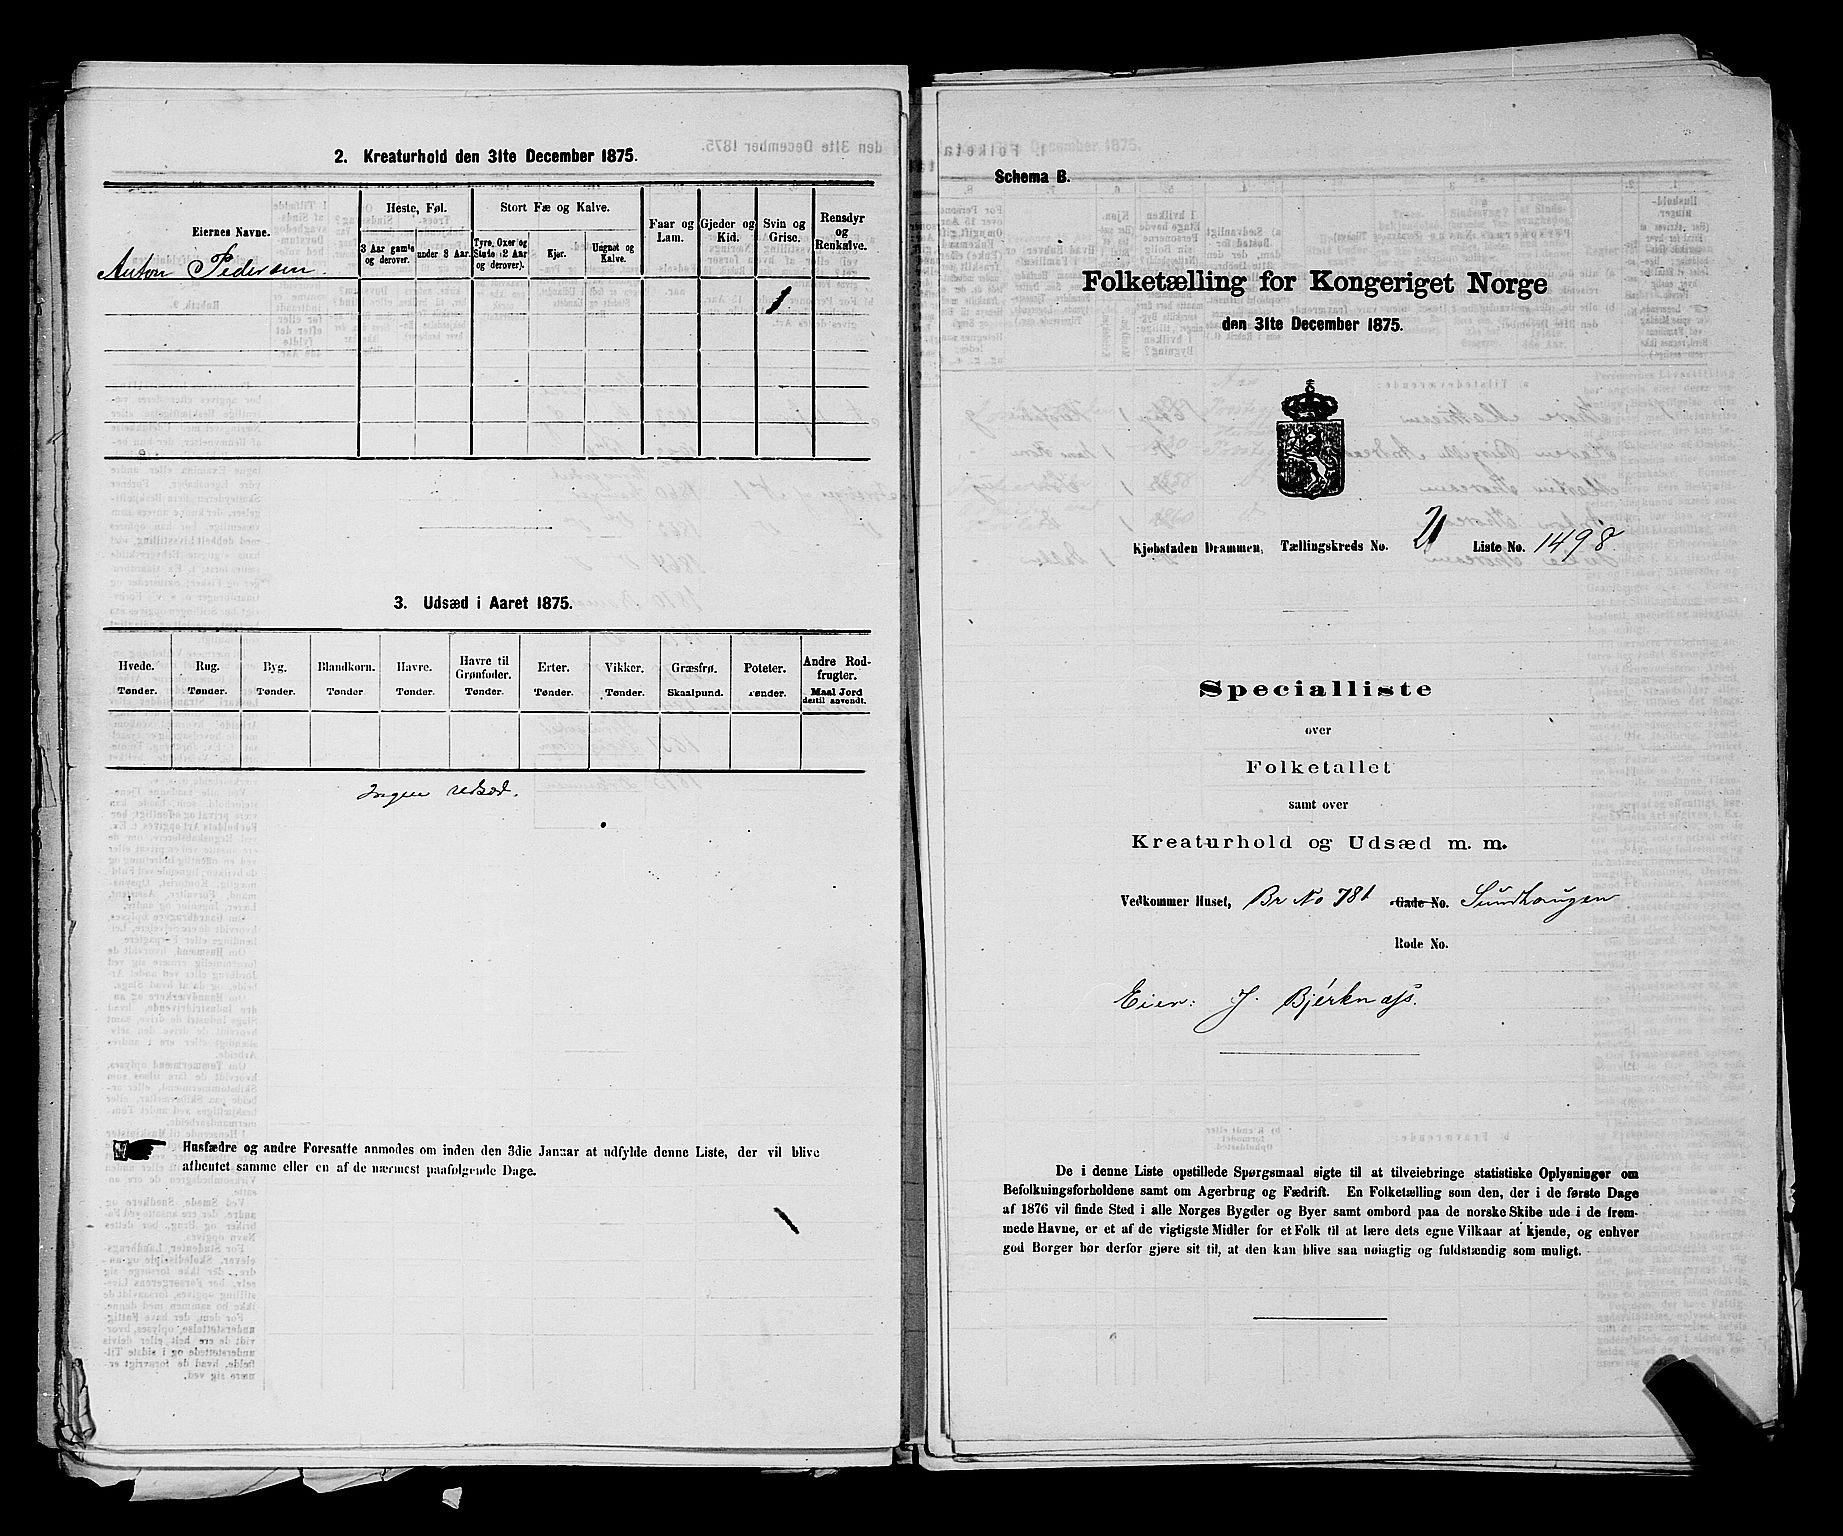 2. Kreaturhold den 31te December 1875.
Eiernes Navne.
Heste, Føl.
3 Aar gamle og derover.
under 3 Aar.
Stort Fæ og Kalve.
Tyre, Oxer og Stude (2 Aar og derover).
Kjør.
Ungnøt og Kalve.
Faar og Lam.
Gjeder og Kid.
Svin og Grise.
Rensdyr og Renkalve.
Anton Pedersen.
1
3. Udsæd i Aaret 1875.
Hvede. Rug. Byg. Blandkorn. Havre. Havre til Grønfoder. Erter. Vikker. Græsfrø. Poteter. Andre Rodfrugter.
Tønder. Tønder. Tønder. Tønder Tønder. Tønder. Tønder. Tønder. Skaalpund. Tønder. Maal Jord dertil anvendt.
Ingen Udsæd.
Husfædre og andre Foresatte anmodes om inden den 3die Januar at udfylde denne Liste, der vil blive
afhentet samme eller en af de nærmest paafølgende Dage.
Schema B.
Folketælling for Kongeriget Norge
den 31te December 1875.
Kjøbstaden Drammen, Tællingskreds No. 21 Liste No. 1498
Specialliste
over
Folketallet
samt over
Kreaturhold og Udsæd m. m.
Vedkommer Huset, Br No 781 Gade No. Sundhaugen
Rode No.
Eier: J. Bjérknæs.
De i denne Liste opstillede Spørgsmaal sigte til at tilveiebringe statistiske Oplysninger om
Befolkningsforholdene samt om Agerbrug og Fædrift. En Folketælling som den, der i de første Dage
af 1876 vil finde Sted i alle Norges Bygder og Byer samt ombord paa de norske Skibe ude i de frem-
mede Havne, er et af de vigtigste Midler for et Folk til at lære dets egne Vilkaar at kjende, og enhver
god Borger bør derfor gjøre sit til, at den kan blive saa nøiagtig og fuldstændig som muligt.